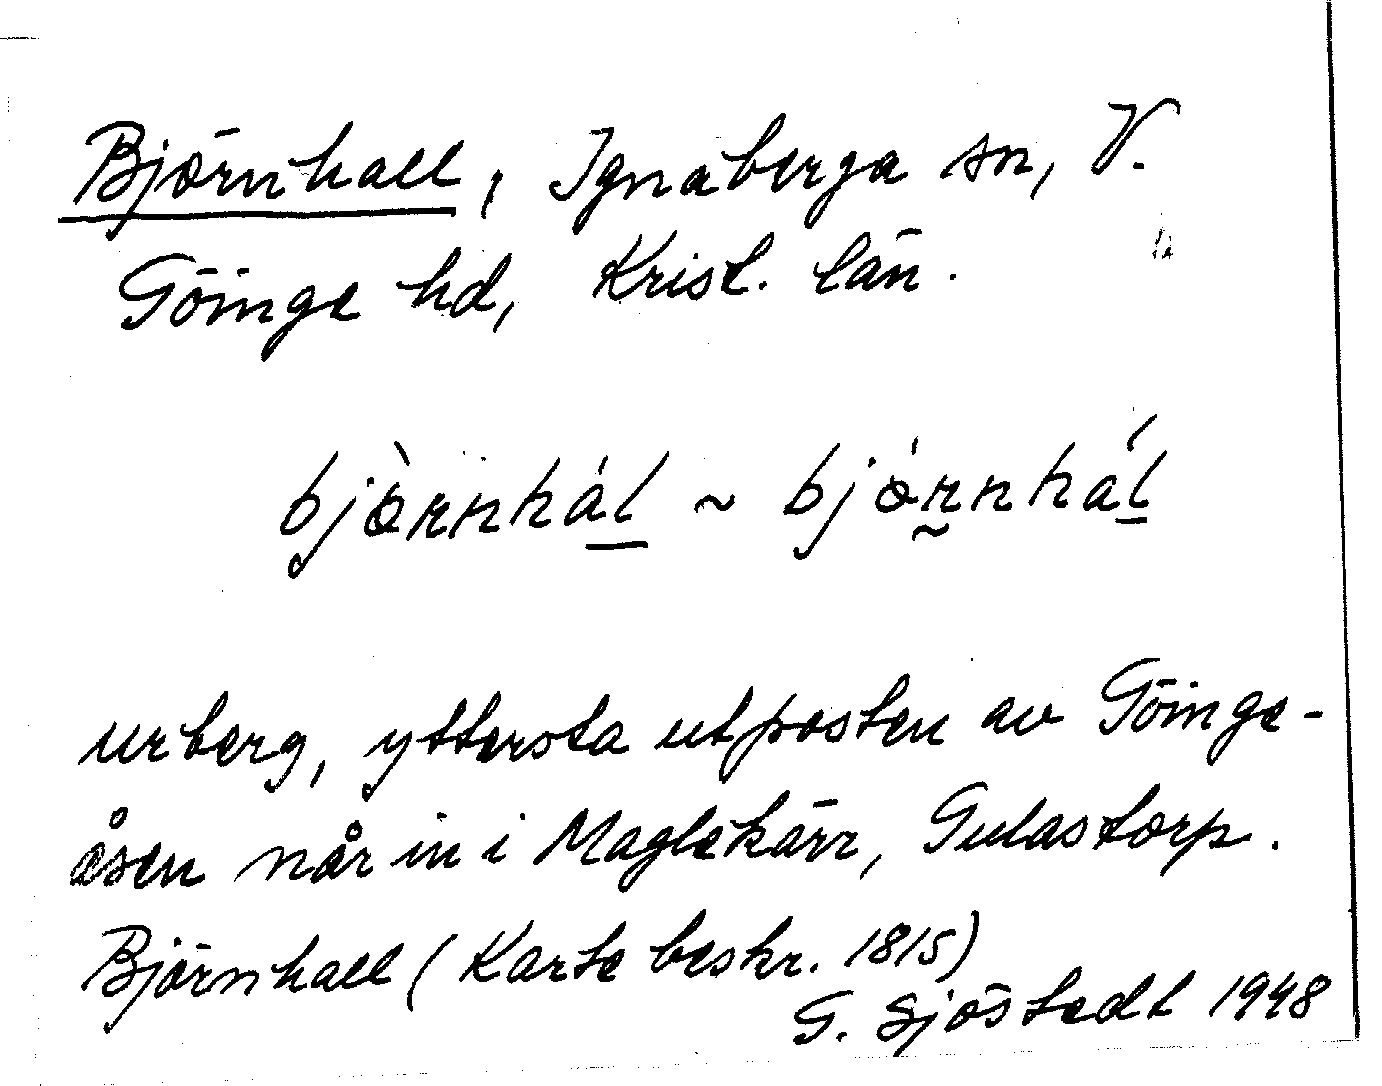 Björnhall, Ignaberga sn, V.
Göinge hd, Krist. län.
bjö̀rnhál ~ bjö́rnhál
urberg, yttersta utposten av Göinge-
åsen når in i Maglekärr, Gulastorp.
Björnhall (Karte beskr. 1815)
G. Sjöstedt 1948